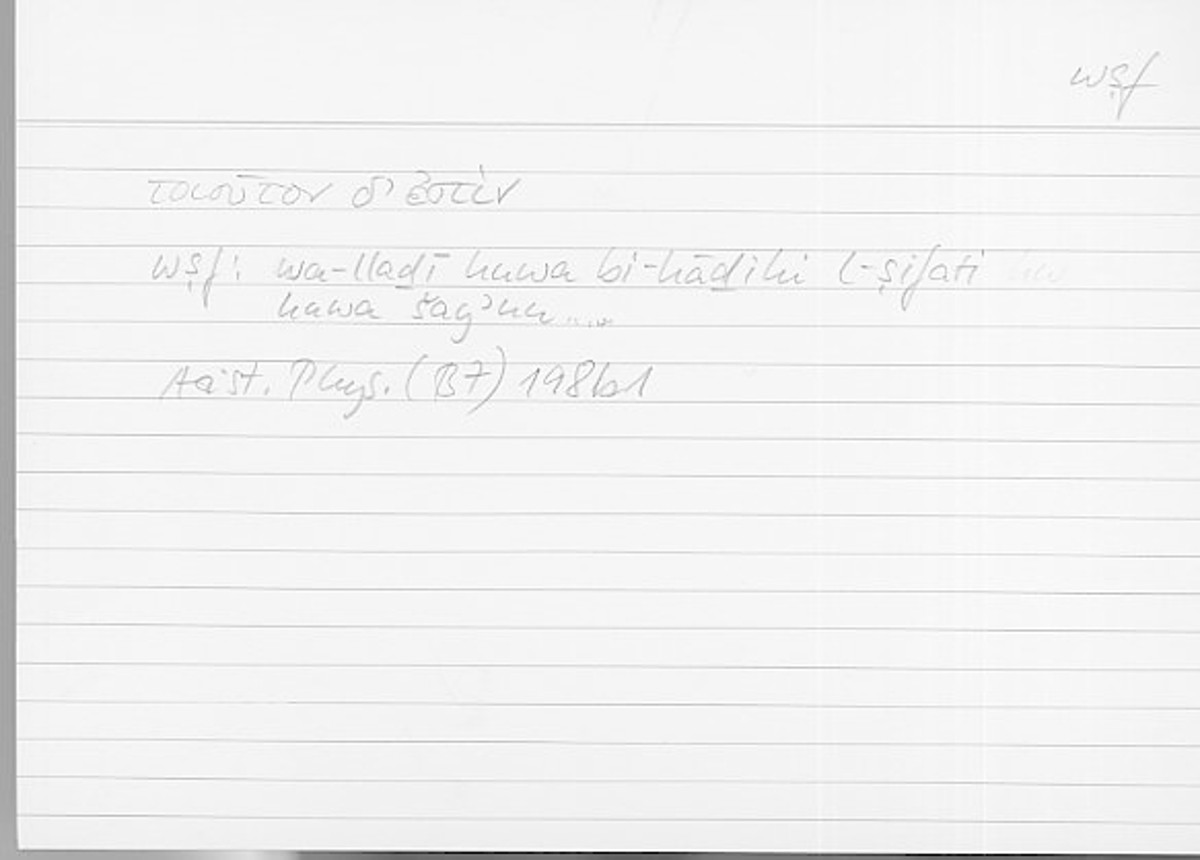 wṣf
τοιοῦτον δ' ἐστὶν
wṣf: wa-lladī huwa bi-hāḏihi l-ṣifati
huwa šayʾun....
Arist. Phys. (B7) 198b1